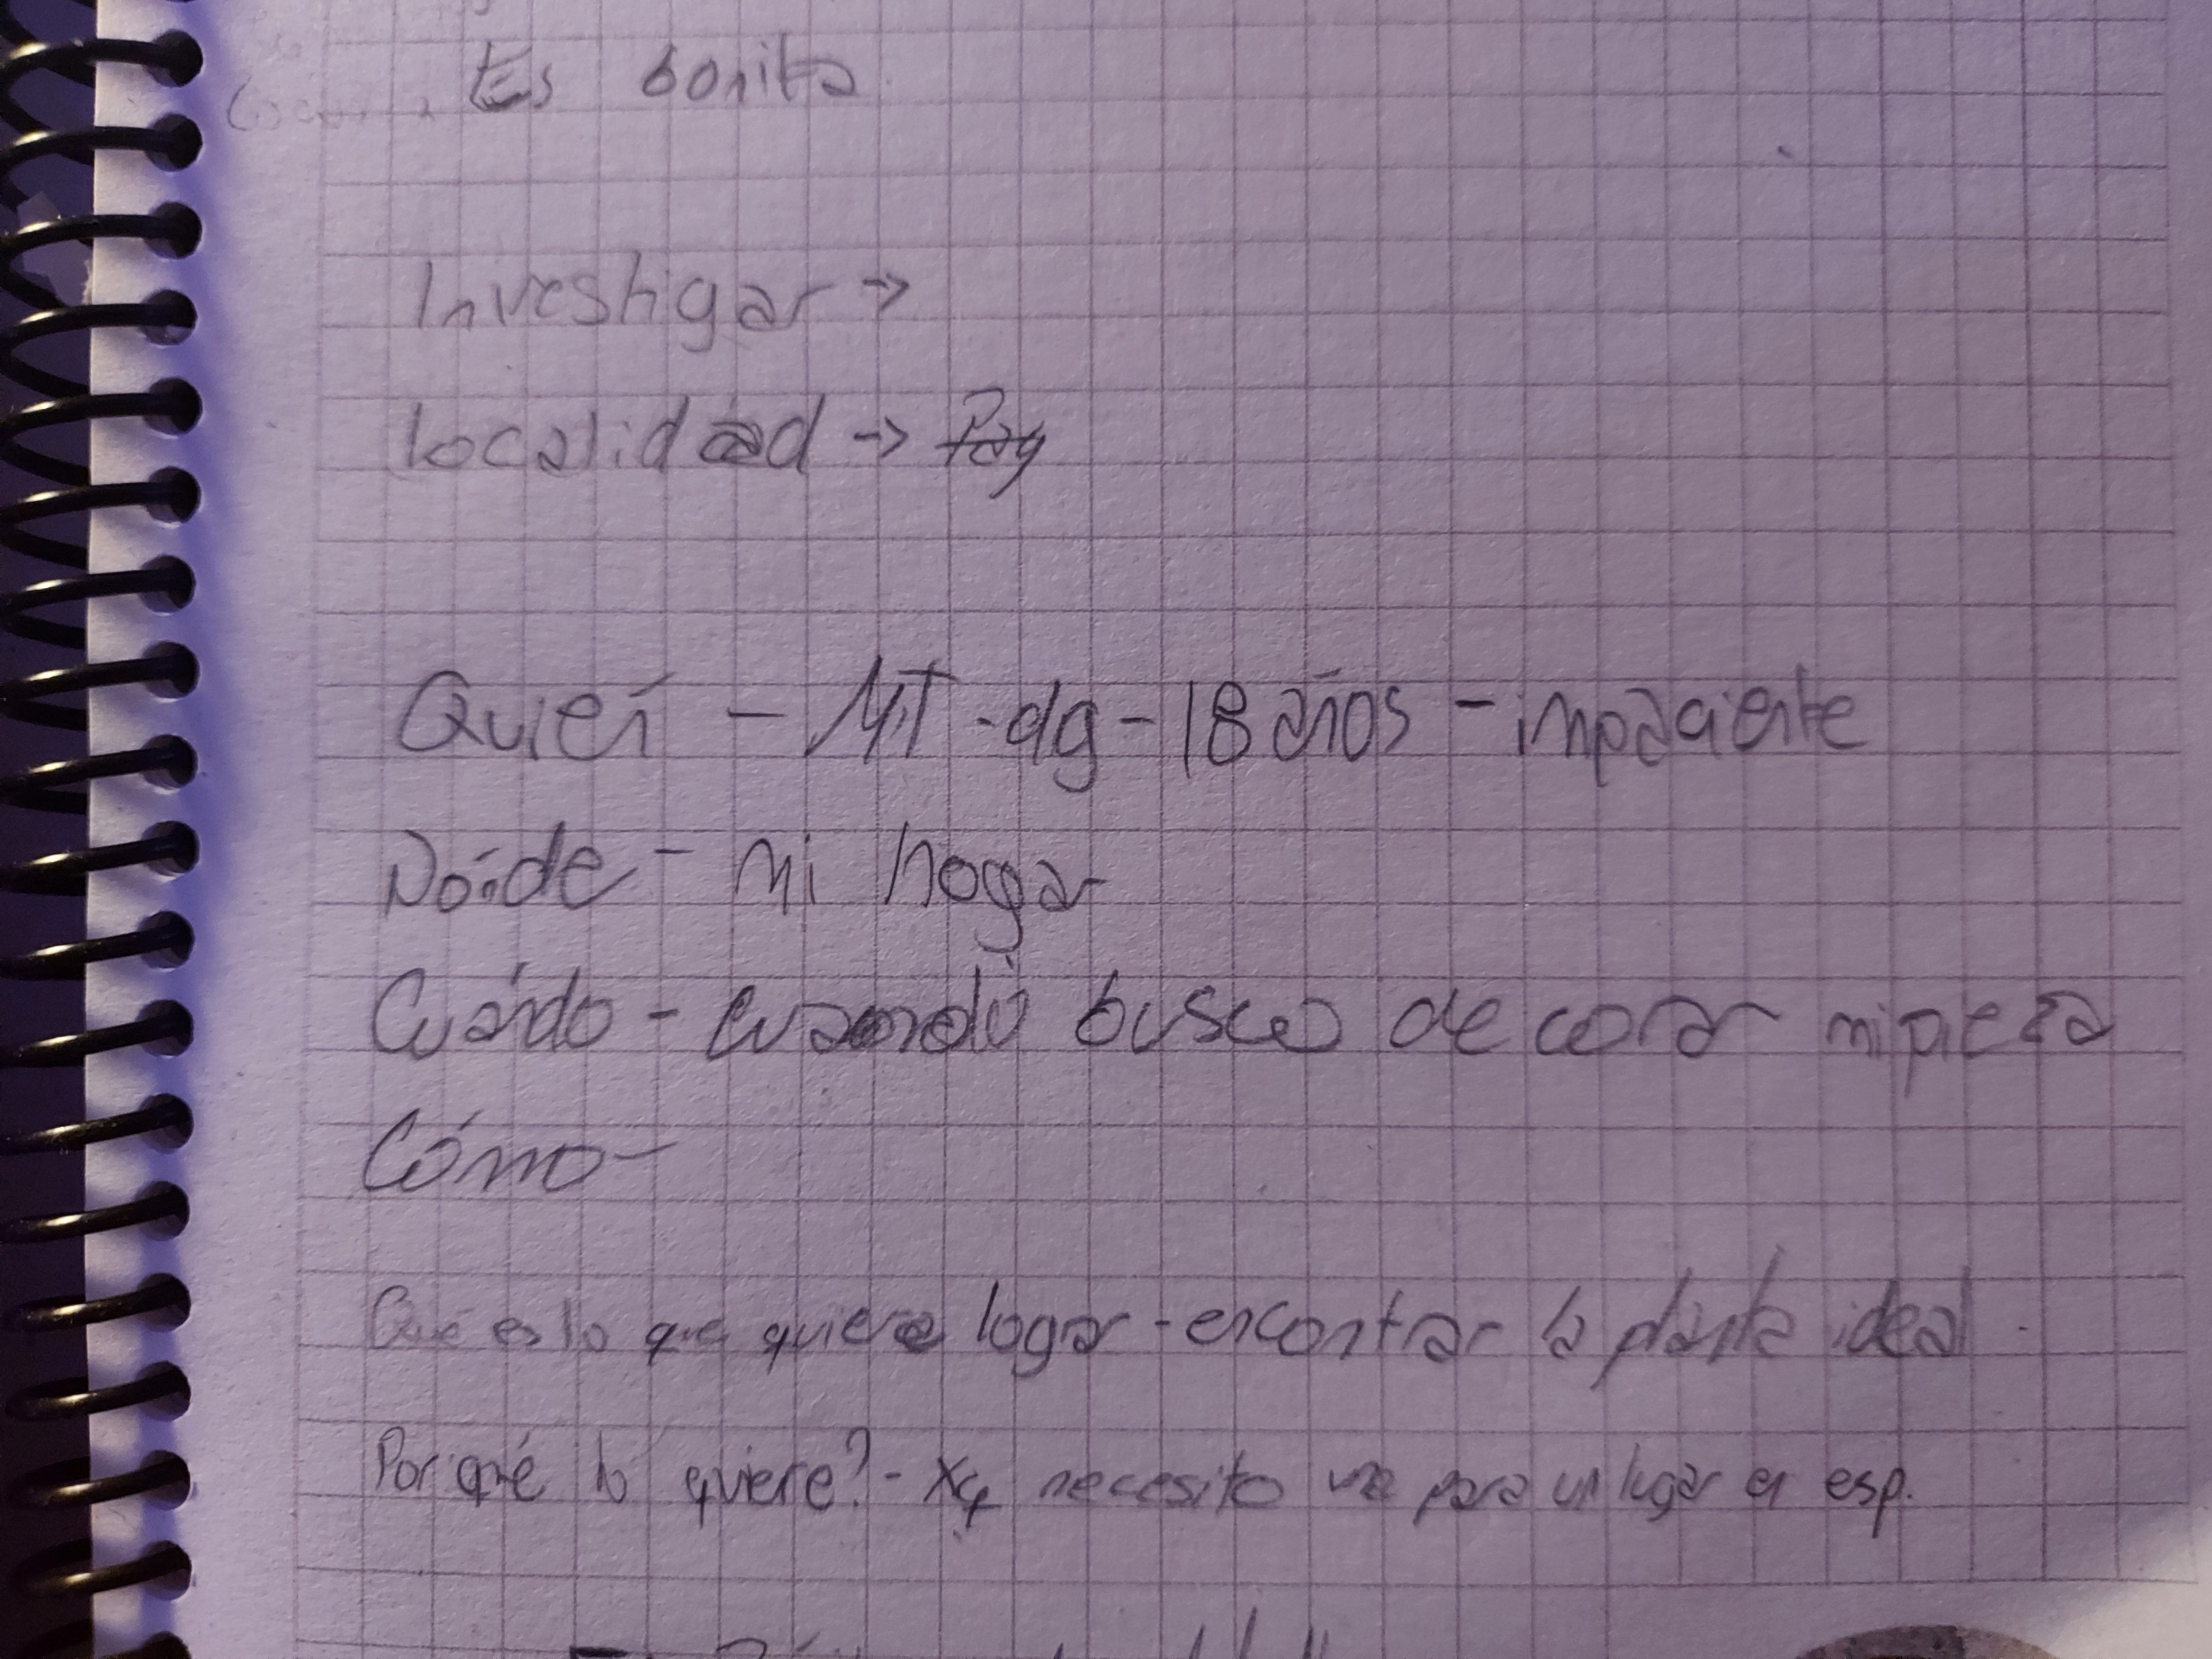 Es bonita
Investigar →
Localidad →
Quién - MT - dg - 18 años - impaciente
Dónde - mi hogar
Cuándo - cuando busco decorar mi pieza
Cómo -
Qué es lo que quiere logar - encontrar la planta ideal.
Por qué lo quiere? - xq necesito una para un lugar en esp.